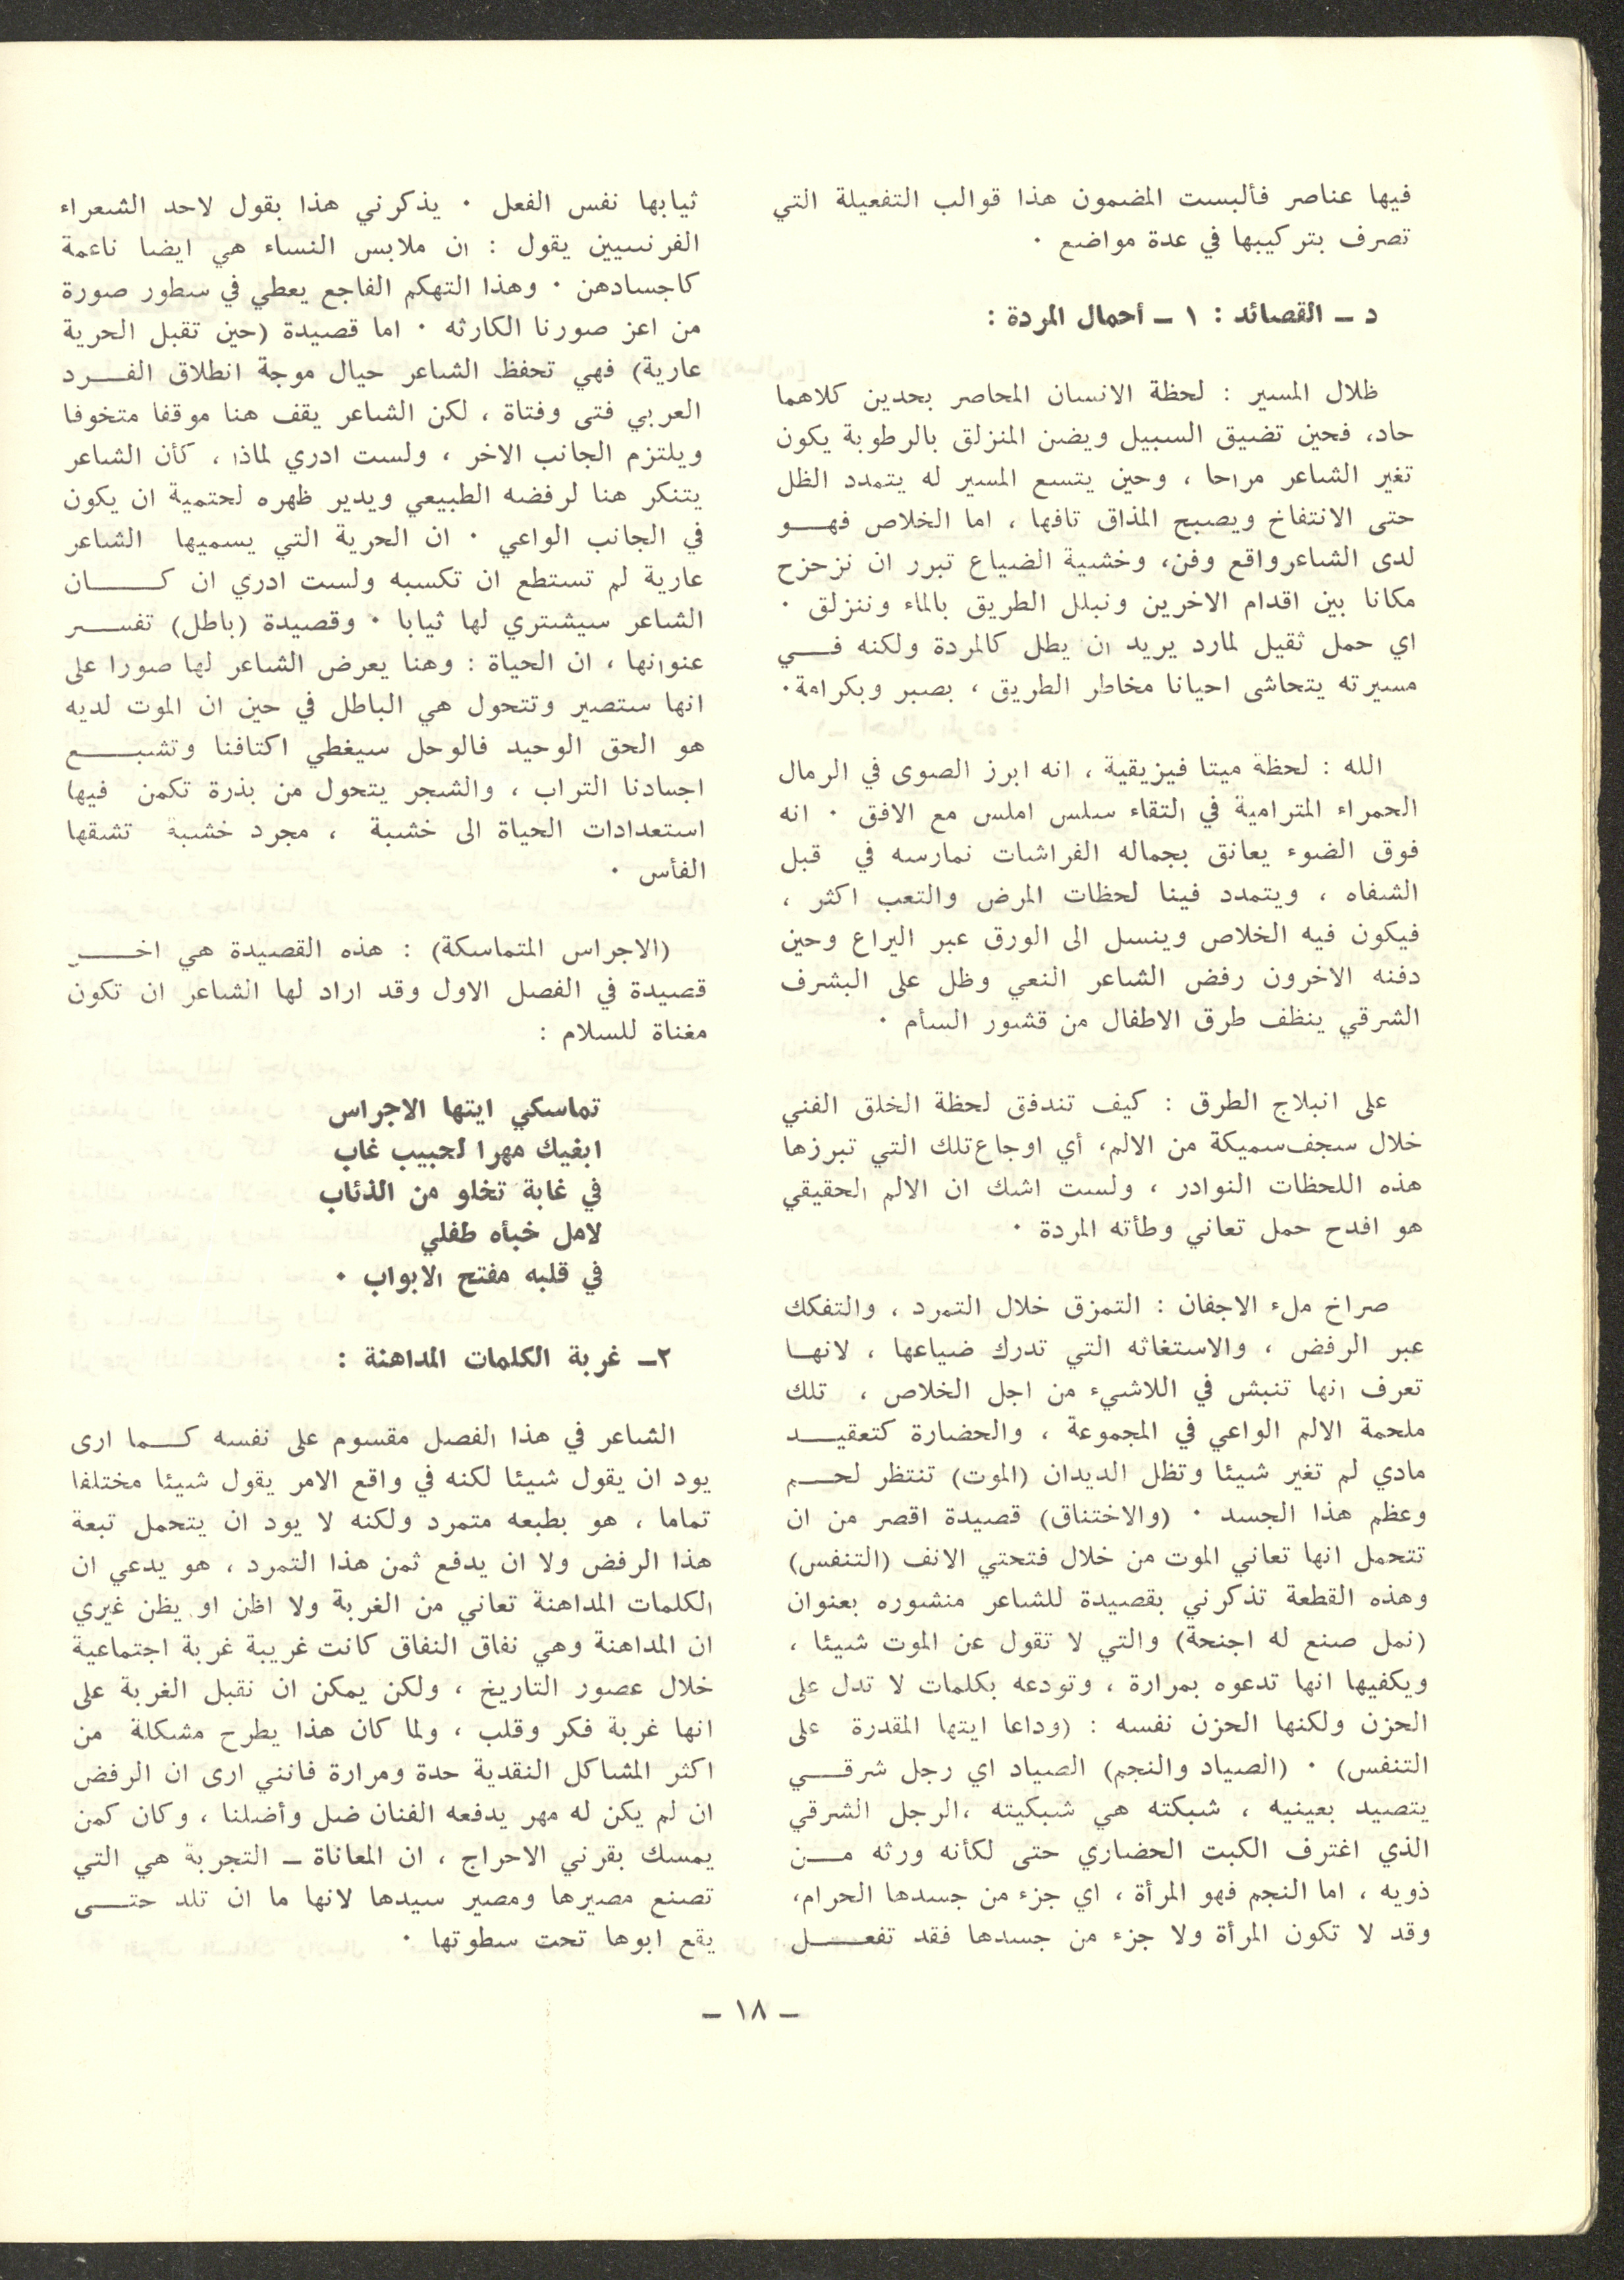 فيها عناصر فألبست المضمون هذا قوالب التفعيلة التي
تصرف بتركيبها في عدة مواضع ·
د ــ القصائد : ١ ــ أحمال المردة :
ظلال المسير : لحظة الانسان المحاصر بحدين كلاهما
حاد، فحين تضيق السبيل ويضن المنزلق بالرطوبة يكون
تغير الشاعر مراحا ، وحين يتسع المسير له يتمدد الظل
حتى الانتفاخ ويصبح المذاق تافها ، اما الخلاص فهو
لدى الشاعر واقع وفن، وخشية الضياع تبرر ان نزحزح
مكانا بين اقدام الاخرين ونبلل الطريق بالماء وننزلق ·
اي حمل ثقيل لمارد يريد ان يطل كالمردة ولكنه في
مسيرته يتحاشى احيانا مخاطر الطريق ، بصبر وبكرامة·
الله : لحظة ميتا فيزيقية ، انه ابرز الصوى في الرمال
الحمراء المترامية في التقاء سلس املس مع الافق · انه
فوق الضوء يعانق بجماله الفراشات نمارسه في قبل
الشفاه ، ويتمدد فينا لحظات المرض والتعب اكثر ،
فيكون فيه الخلاص وينسل الى الورق عبر اليراع وحين
دفنه الاخرون رفض الشاعر النعي وظل على البشرف
الشرقي ينظف طرق الاطفال من قشور السأم ·
على انبلاج الطرق : كيف تندفق لحظة الخلق الفني
خلال سجف سميكة من الالم، أي اوجاع تلك التي تبرزها
هذه اللحظات النوادر ، ولست اشك ان الالم الحقيقي
هو افدح حمل تعاني وطأته المردة ·
صراخ ملء الاجفان : التمزق خلال التمرد ، والتفكك
عبر الرفض ، والاستغاثه التي تدرك ضياعها ، لانها
تعرف انها تنبش في اللاشيء من اجل الخلاص ، تلك
ملحمة الالم الواعي في المجموعة ، والحضارة كتعقيد
مادي لم تغير شيئا وتظل الديدان (الموت) تنتظر لحم
وعظم هذا الجسد · (والاختناق) قصيدة اقصر من ان
تتحمل انها تعاني الموت من خلال فتحتي الانف (التنفس)
وهذه القطعة تذكرني بقصيدة للشاعر منشوره بعنوان
(نمل صنع له اجنحة) والتي لا تقول عن الموت شيئا ،
ويكفيها انها تدعوه بمرارة ، وتودعه بكلمات لا تدل على
الحزن ولكنها الحزن نفسه : (وداعا ايتها المقدرة على
التنفس) · (الصياد والنجم) الصياد اي رجل شرقي
يتصيد بعينيه ، شبكته هي شبكيته ،الرجل الشرقي
الذي اغترف الكبت الحضاري حتى لكأنه ورثه من
ذويه ، اما النجم فهو المرأة ، اي جزء من جسدها الحرام،
وقد لا تكون المرأة ولا جزء من جسدها فقد تفعل
ثيابها نفس الفعل · يذكرني هذا بقول لاحد الشعراء
الفرنسيين يقول : ان ملابس النساء هي ايضا ناعمة
كاجسادهن · وهذا التهكم الفاجع يعطي في سطور صورة
من اعز صورنا الكارثه · اما قصيدة (حين تقبل الحرية
عارية) فهي تحفظ الشاعر حيال موجة انطلاق الفرد
العربي فتى وفتاة ، لكن الشاعر يقف هنا موقفا متخوفا
ويلتزم الجانب الاخر ، ولست ادري لماذا ، كأن الشاعر
يتنكر هنا لرفضه الطبيعي ويدير ظهره لحتمية ان يكون
في الجانب الواعي · ان الحرية التي يسميها الشاعر
عارية لم تستطع ان تكسبه ولست ادري ان كان
الشاعر سيشتري لها ثيابا · وقصيدة (باطل) تفسر
عنوانها ، ان الحياة : وهنا يعرض الشاعر لها صورا على
انها ستصير وتتحول هي الباطل في حين ان الموت لديه
هو الحق الوحيد فالوحل سيغطي اكتافنا وتشبع
اجسادنا التراب ، والشجر يتحول من بذرة تكمن فيها
استعدادات الحياة الى خشبة ، مجرد خشبة تشقها
الفأس ·
(الاجراس المتماسكة) : هذه القصيدة هي اخر
قصيدة في الفصل الاول وقد اراد لها الشاعر ان تكون
مغناة للسلام :
تماسكي ايتها الاجراس
ابغيك مهرا لحبيب غاب
في غابة تخلو من الذئاب
لامل خبأه طفلي
في قلبه مفتح الابواب ·
٢ــ غربة الكلمات المداهنة :
الشاعر في هذا الفصل مقسوم على نفسه كما ارى
يود ان يقول شيئا لكنه في واقع الامر يقول شيئا مختلفا
تماما ، هو بطبعه متمرد ولكنه لا يود ان يتحمل تبعة
هذا الرفض ولا ان يدفع ثمن هذا التمرد ، هو يدعي ان
الكلمات المداهنة تعاني من الغربة ولا اظن او يظن غيري
ان المداهنة وهي نفاق النفاق كانت غريبة غربة اجتماعية
خلال عصور التاريخ ، ولكن يمكن ان نقبل الغربة على
انها غربة فكر وقلب ، ولما كان هذا يطرح مشكلة من
اكثر المشاكل النقدية حدة ومرارة فانني ارى ان الرفض
ان لم يكن له مهر يدفعه الفنان ضل وأضلنا ، وكان كمن
يمسك بقرني الاحراج ، ان المعاناة ــ التجربة هي التي
تصنع مصيرها ومصير سيدها لانها ما ان تلد حتى
يقع ابوها تحت سطوتها ·
ــ ١٨ ــ